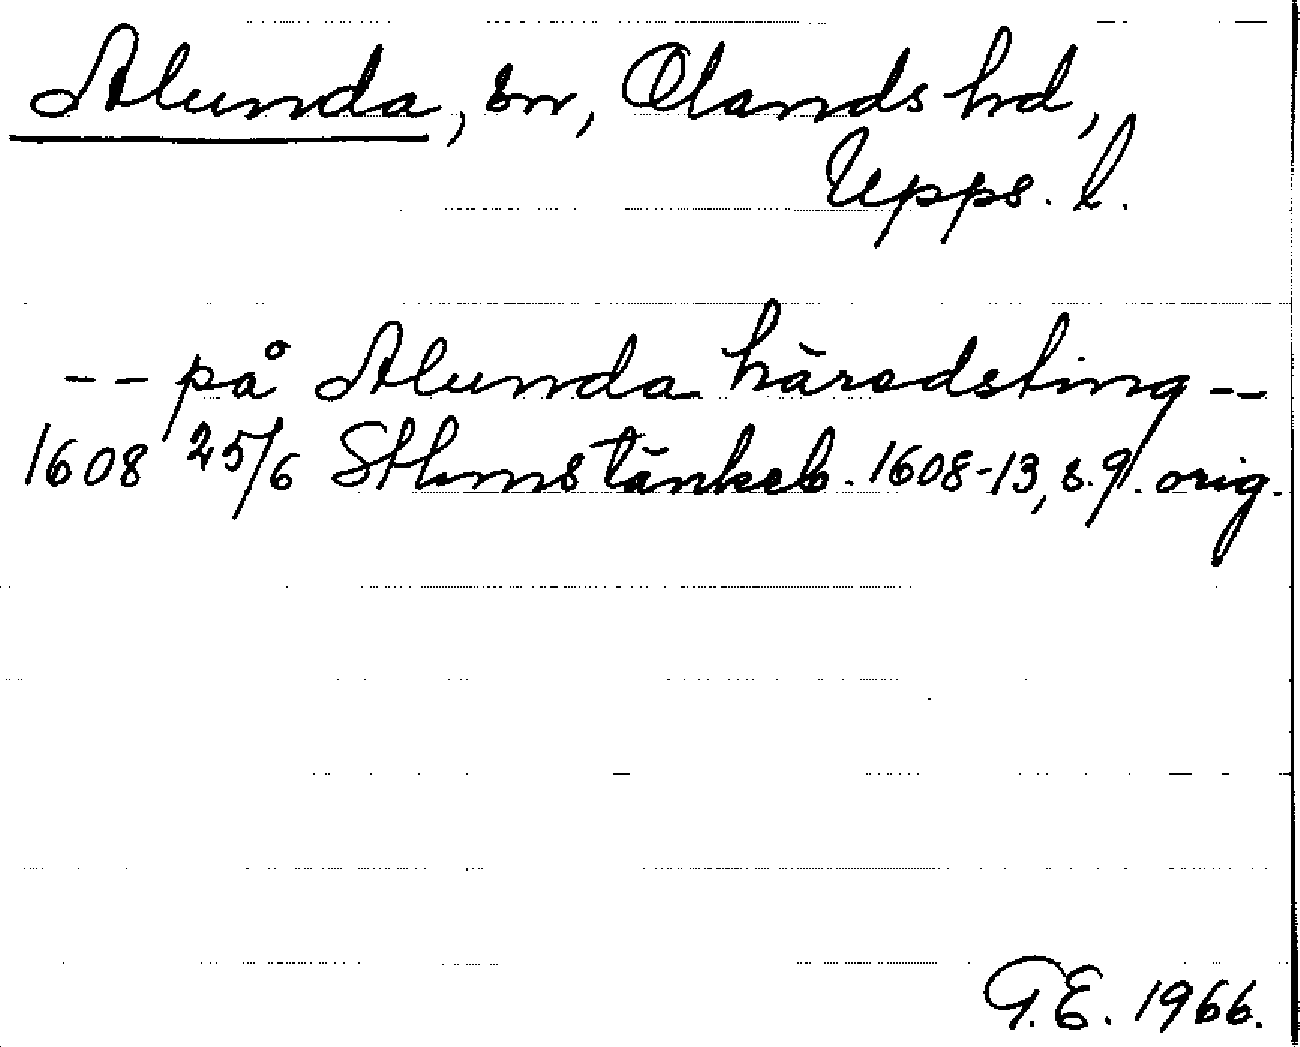 Alunda, sn, Olands hd,
Upps. l.
-- på Alunda häradsting --
1608 25/6 Sthms tänkeb. 1608-13, s. 9. orig.
G.E. 1966.